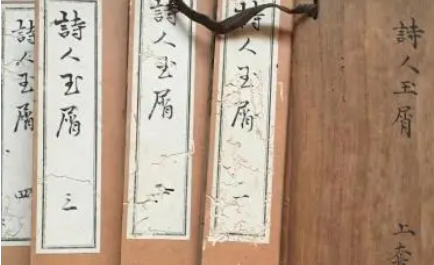 詩人玉屑 上
詩人玉屑 一
詩人玉屑
詩人玉屑 三
詩人玉屑 四